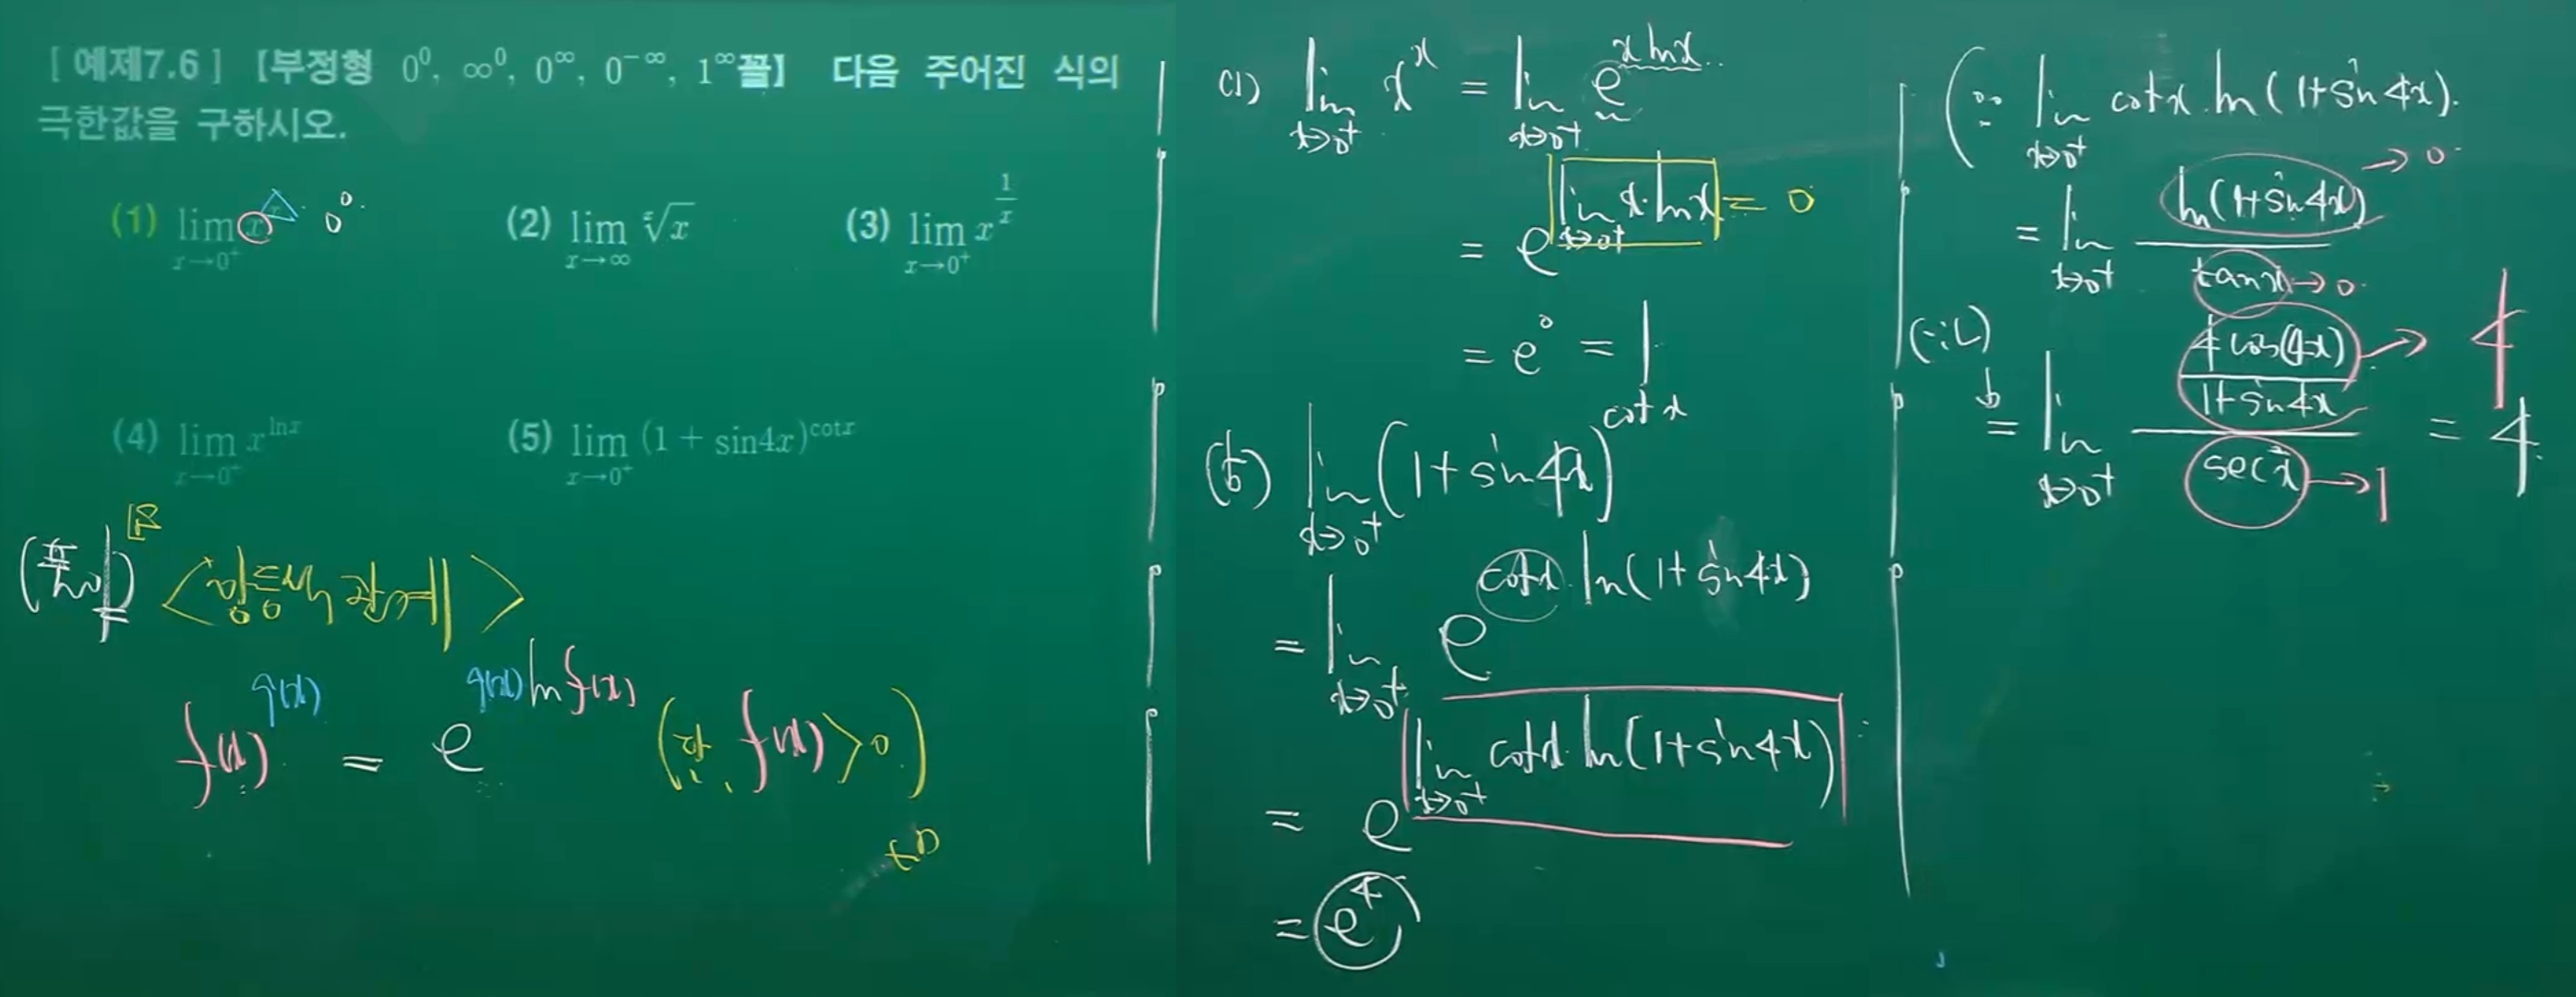 [ 예제7.6 ] [부정형 0⁰, ∞⁰, 0^∞, 0^-∞, 1^∞꼴] 다음 주어진 식의
극한값을 구하시오.
(1) lim x→0⁺ x^x 0⁰.
(2) lim x→∞ ˣ√x
(3) lim x→0⁺ x^(1/x)
(4) lim x→0⁺ x^(lnx)
(5) lim x→0⁺ (1 + sin4x)^(cotx)
(풀이) <항등식 관계>
f(x)^g(x) = e^(g(x) ln f(x)) (단, f(x) > 0)
(1) lim x→0⁺ x^x = lim x→0⁺ e^(x lnx)
= e^(lim x→0⁺ x·lnx) = 0
= e⁰ = 1
(5) lim x→0⁺ (1+sin4x)^(cotx)
= lim x→0⁺ e^(cotx·ln(1+sin4x))
= e^(lim x→0⁺ cotx·ln(1+sin4x))
= e⁴
(∵ lim x→0⁺ cotx·ln(1+sin4x)
= lim x→0⁺ ln(1+sin4x) → 0 / tanx → 0
(∵L)
= lim x→0⁺ (4cos(4x) / (1+sin4x)) → 4 / sec²x → 1 = 4